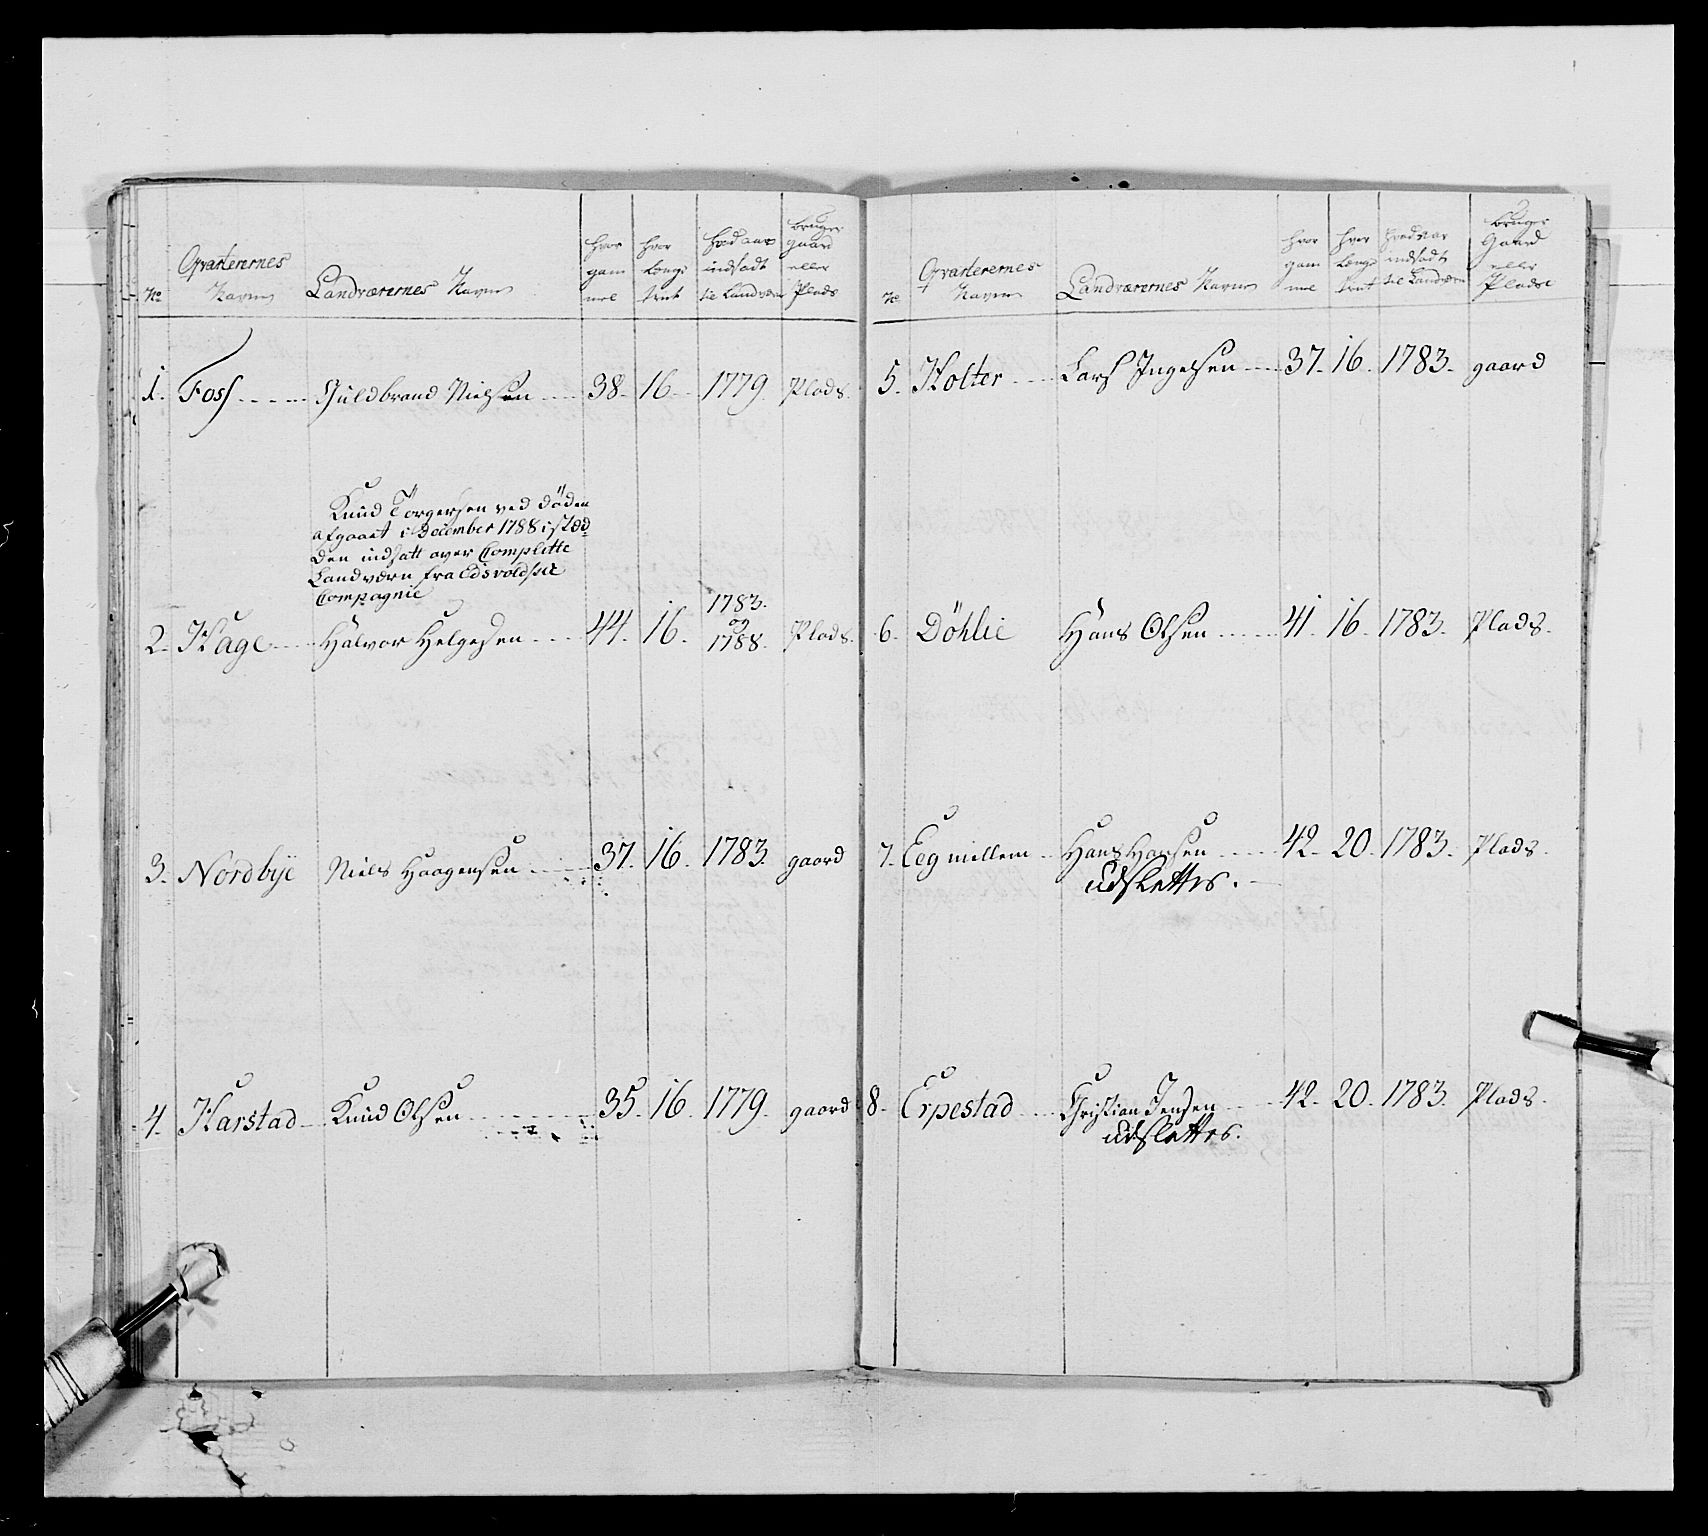 No Qvarterernes Navne Landværernes Navne hvor gammel hvor længe tient hvad aar indsadt til Landværn bruger gaard eller Plads
1. Foss Guldbrand Nielsen 38. 16. 1779. Plads.
Knud Törgersen ved döden
afgaaet i December 1788 i stæd
den indsatt over Complette
Landværn fra Edsvoldske
Compagnie
1783.
og
2. Hage Halvor Helgesen 44. 16. 1788. Plads.
3. Nordbÿe Niels Haagensen 37. 16. 1783. gaard
4. Harstad Knud Olsen 35. 16. 1779. gaard
No Qvarterernes Navne Landværernes Navne hvor gammel hvor længe tient hvad aar indsadt til Landværn bruger Gaard eller Plads
5. Holter Lars Ingelsen 37. 16. 1783. gaard
6. Döhlie Hans Olsen 41. 16. 1783. Plads.
7. Eeg millem Hans Hansen 42. 20. 1783. Plads.
udslettes.
8. Erpestad Christian Jensen 42. 20. 1783. Plads.
udslettes.